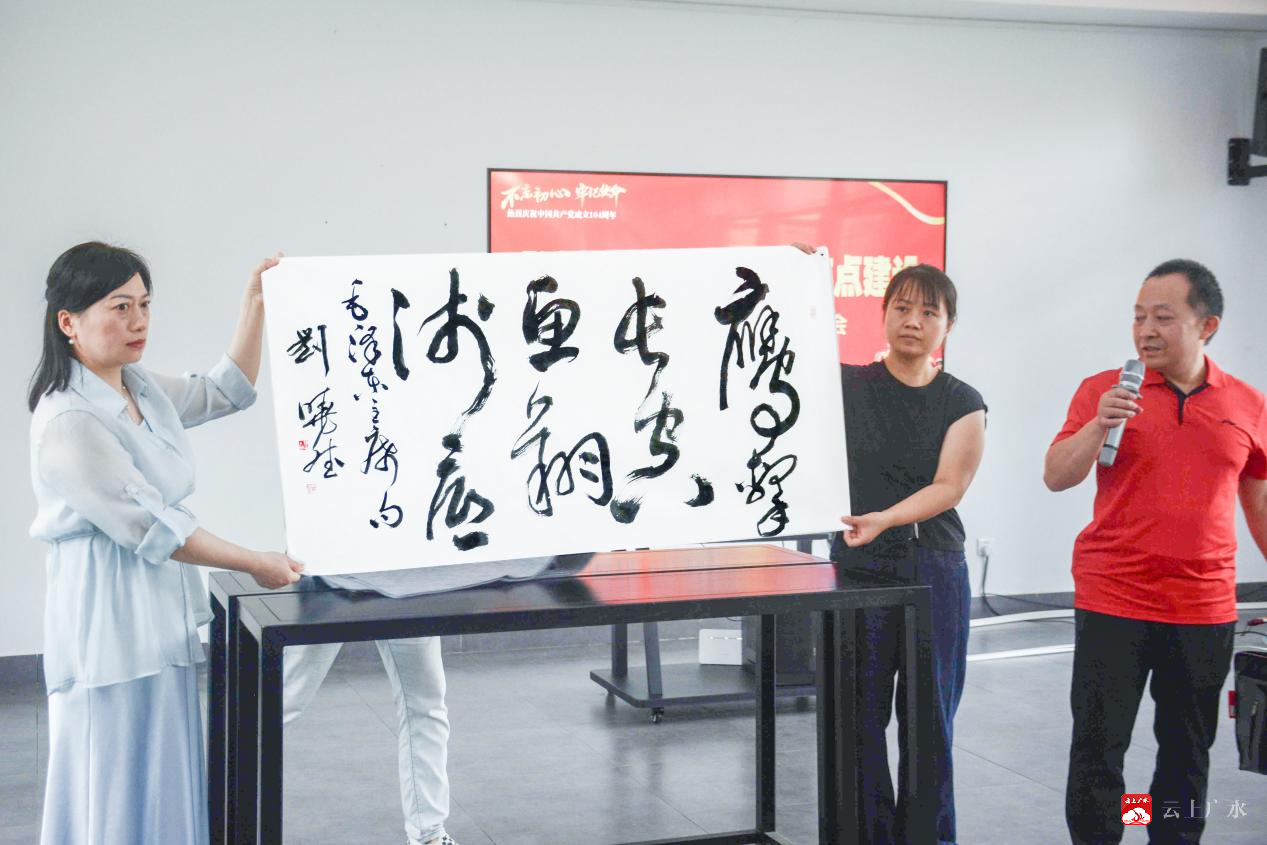 不忘初心 牢记使命
热烈庆祝中国共产党成立104周年
点建设
会
鷹擊
长空
鱼翔
浅底
毛泽东主席句
劉曉
云上广水
云上广水